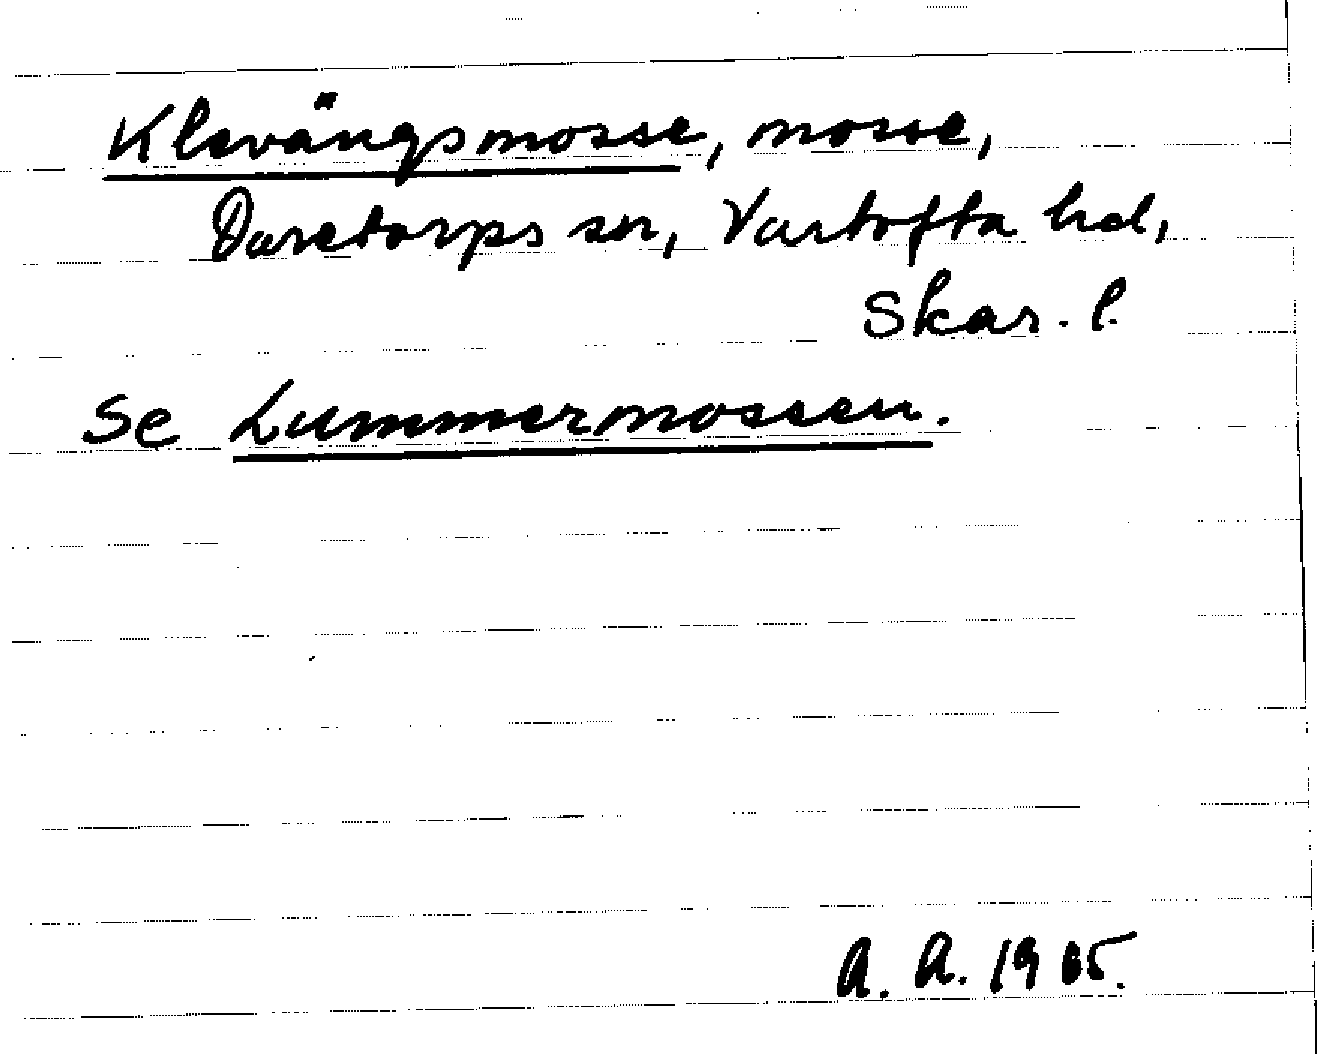 Klevängsmosse, mosse,
Daretorps sn, Vartofta hd,
Skar. l.
Se Lummermossen.
A. A. 1965.